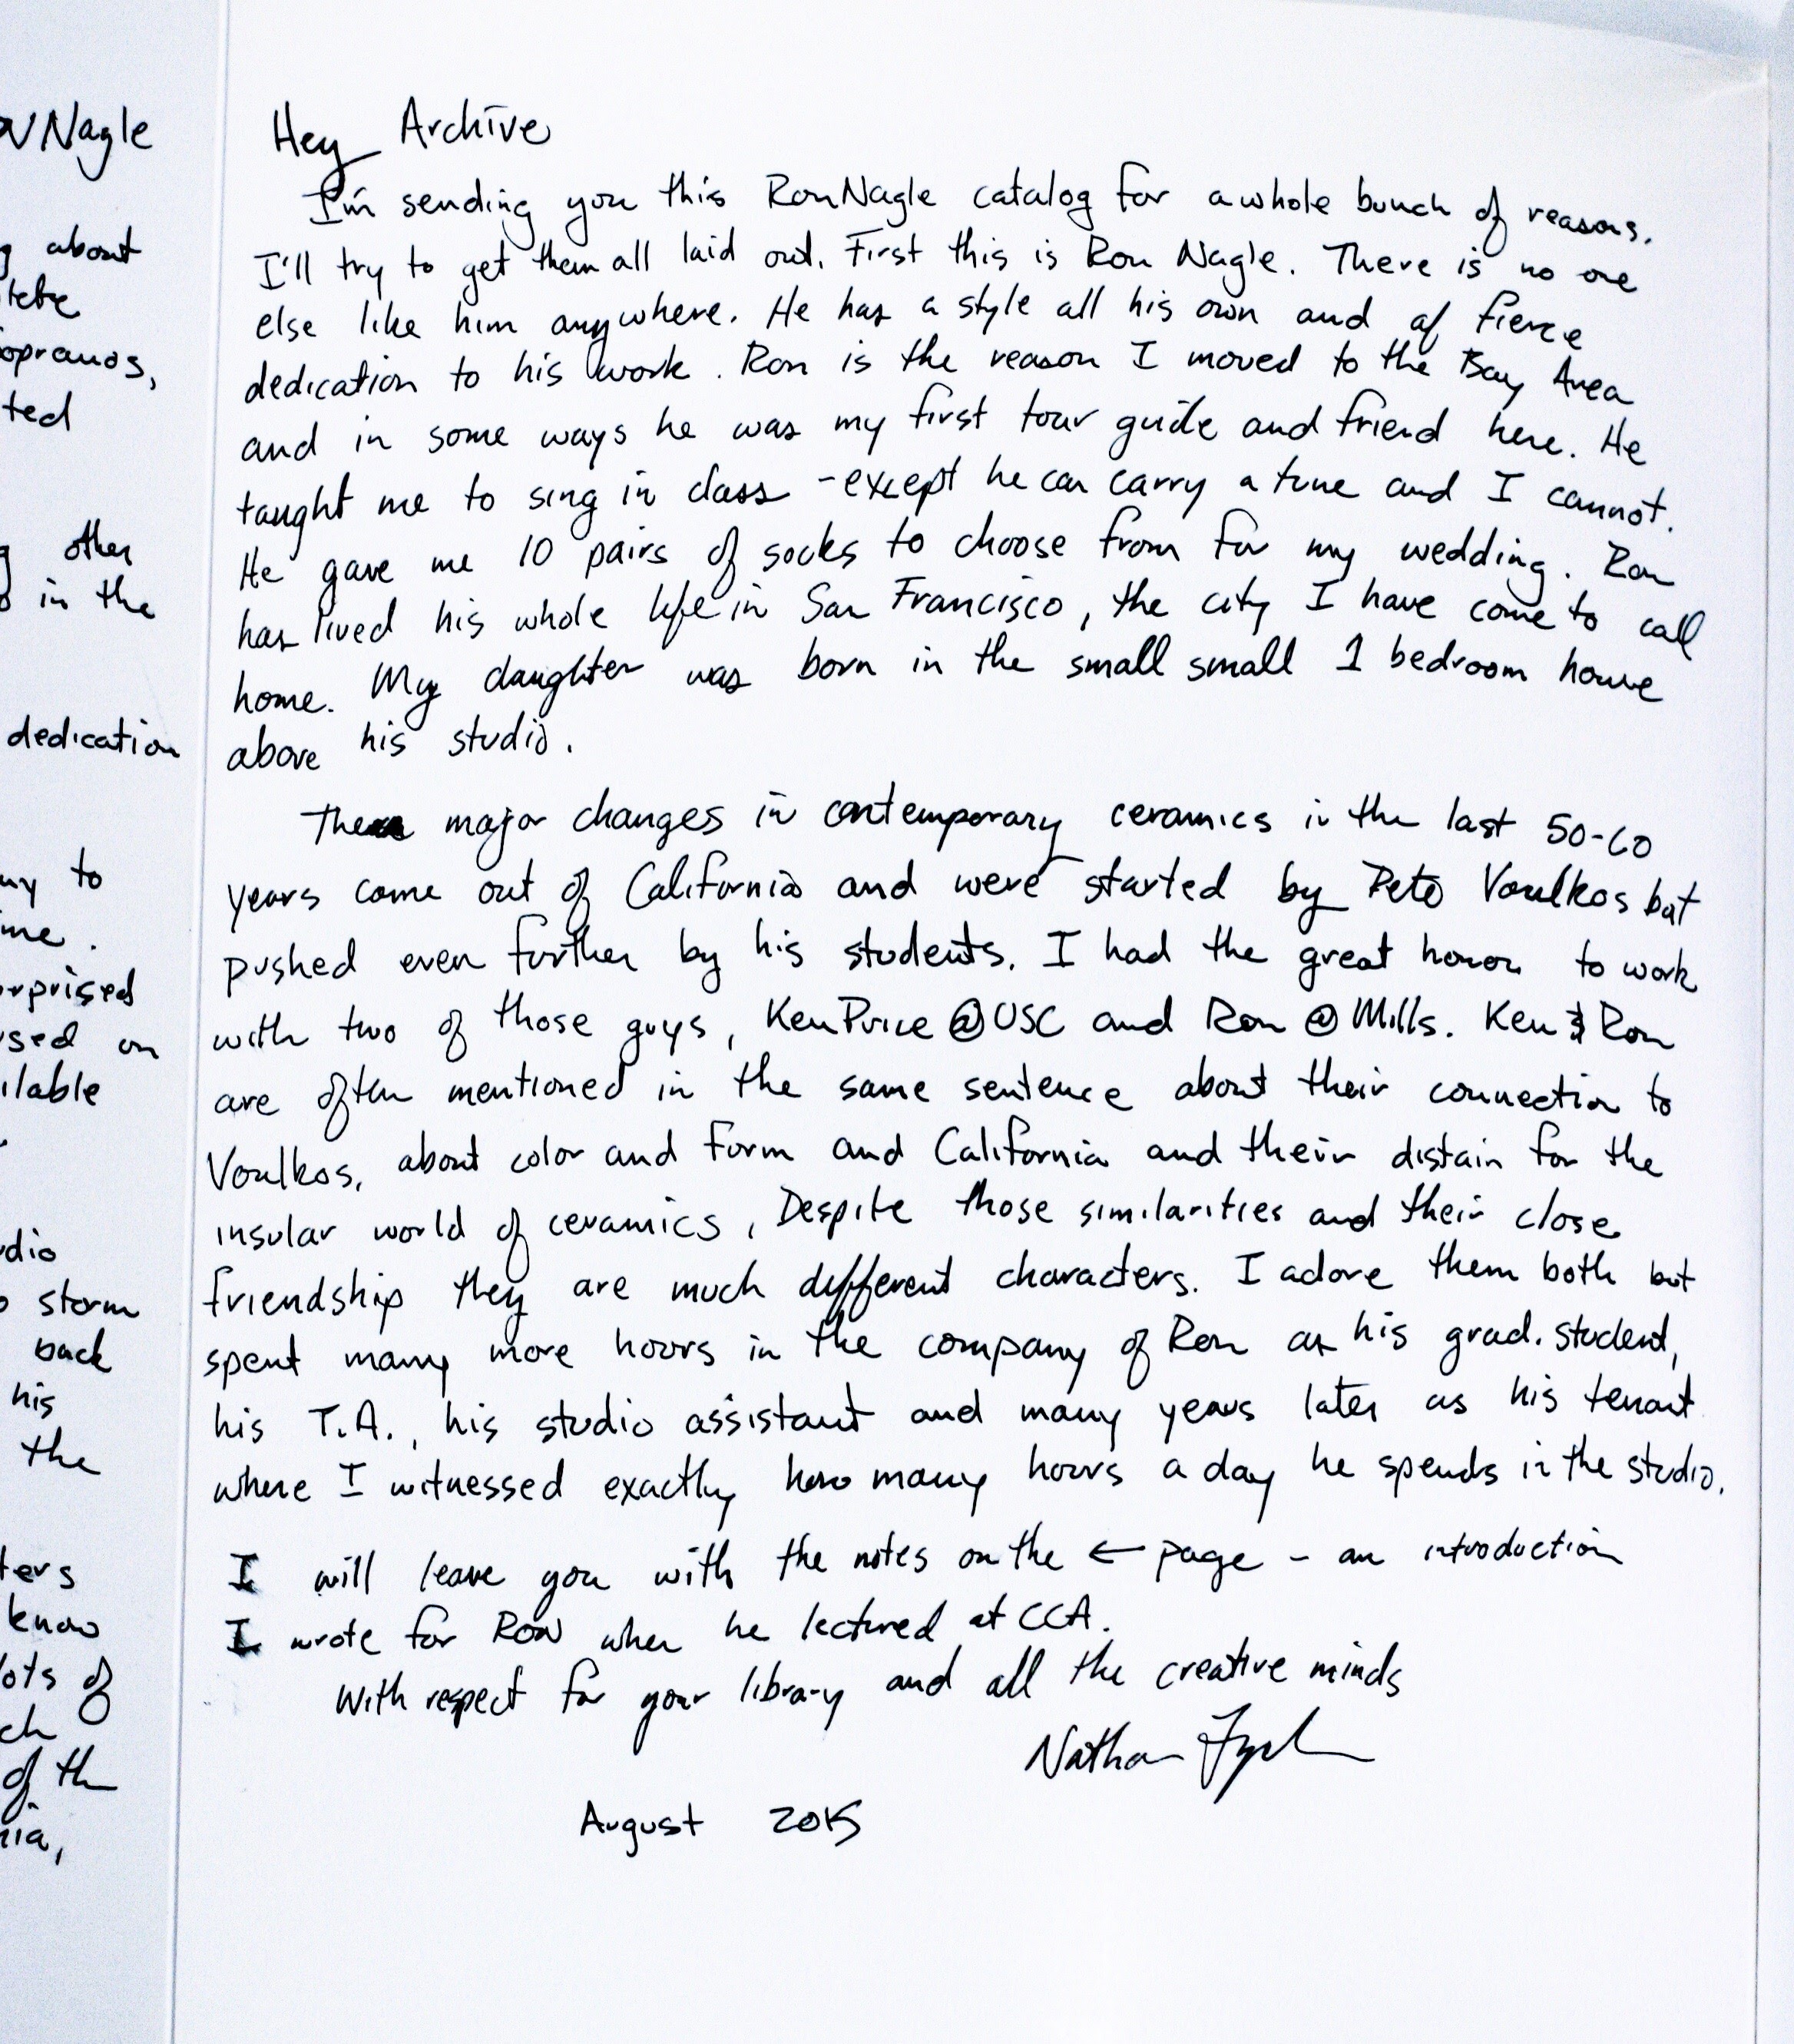 N Nagle
about
opranos,
ted
other
in the
dedication
to
me.
on
storm
back
his
the
know
of
of th
Hey Archive
I'm sending you this Ron Nagle catalog for a whole bunch of reasons.
I'll try to get them all laid out. First this is Ron Nagle. There is no one
else like him anywhere. He has a style all his own and a fierce
dedication to his work. Ron is the reason I moved to the Bay Area
and in some ways he was my first tour guide and friend here. He
taught me to sing in class - except he can carry a tune and I cannot.
He gave me 10 pairs of socks to choose from for my wedding. Ron
has lived his whole life in San Francisco, the city I have come to call
home. My daughter was born in the small small 1 bedroom house
above his studio.
The major changes in contemporary ceramics in the last 50-60
years came out of California and were started by Pete Voulkos but
pushed even further by his students. I had the great honor to work
with two of those guys, Ken Price @ USC and Ron @ Mills. Ken & Ron
are often mentioned in the same sentence about their connection to
Voulkos, about color and form and California and their distain for the
insular world of ceramics. Despite those similarities and their close
friendship they are much different characters. I adore them both but
spent many more hours in the company of Ron as his grad. student,
his T.A., his studio assistant and many years later as his tenant
where I witnessed exactly how many hours a day he spends in the studio.
I will leave you with the notes on the ← page - an introduction
I wrote for Ron when he lectured at CCA.
With respect for your library and all the creative minds
Nathan
August 2015